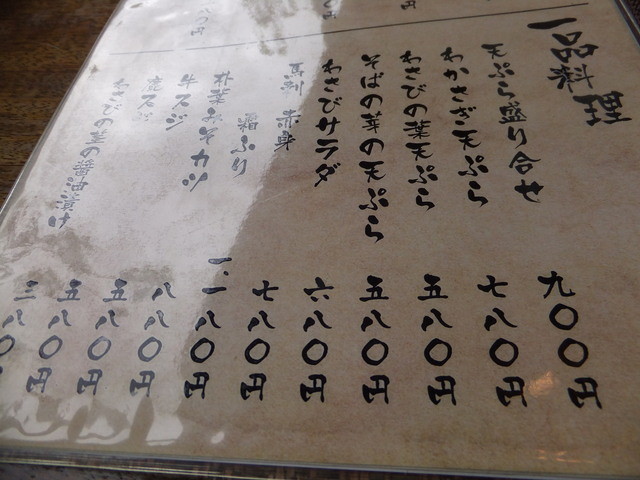 一品料理
天ぷら盛り合せ 九〇〇円
わかさぎ天ぷら 七八〇円
わさびの葉天ぷら 五八〇円
そばの芽の天ぷら 五八〇円
わさびサラダ 六八〇円
馬刺 赤身 七八〇円
霜ふり 一、一八〇円
朴葉みそカツ 八八〇円
牛スジ 五八〇円
鹿スジ 五八〇円
わさびの茎の醤油漬け 三八〇